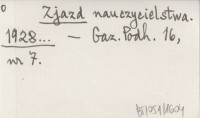 Zjazd nauczycielstwa.
1928... — Gaz. Podh. 16,
nr 7.